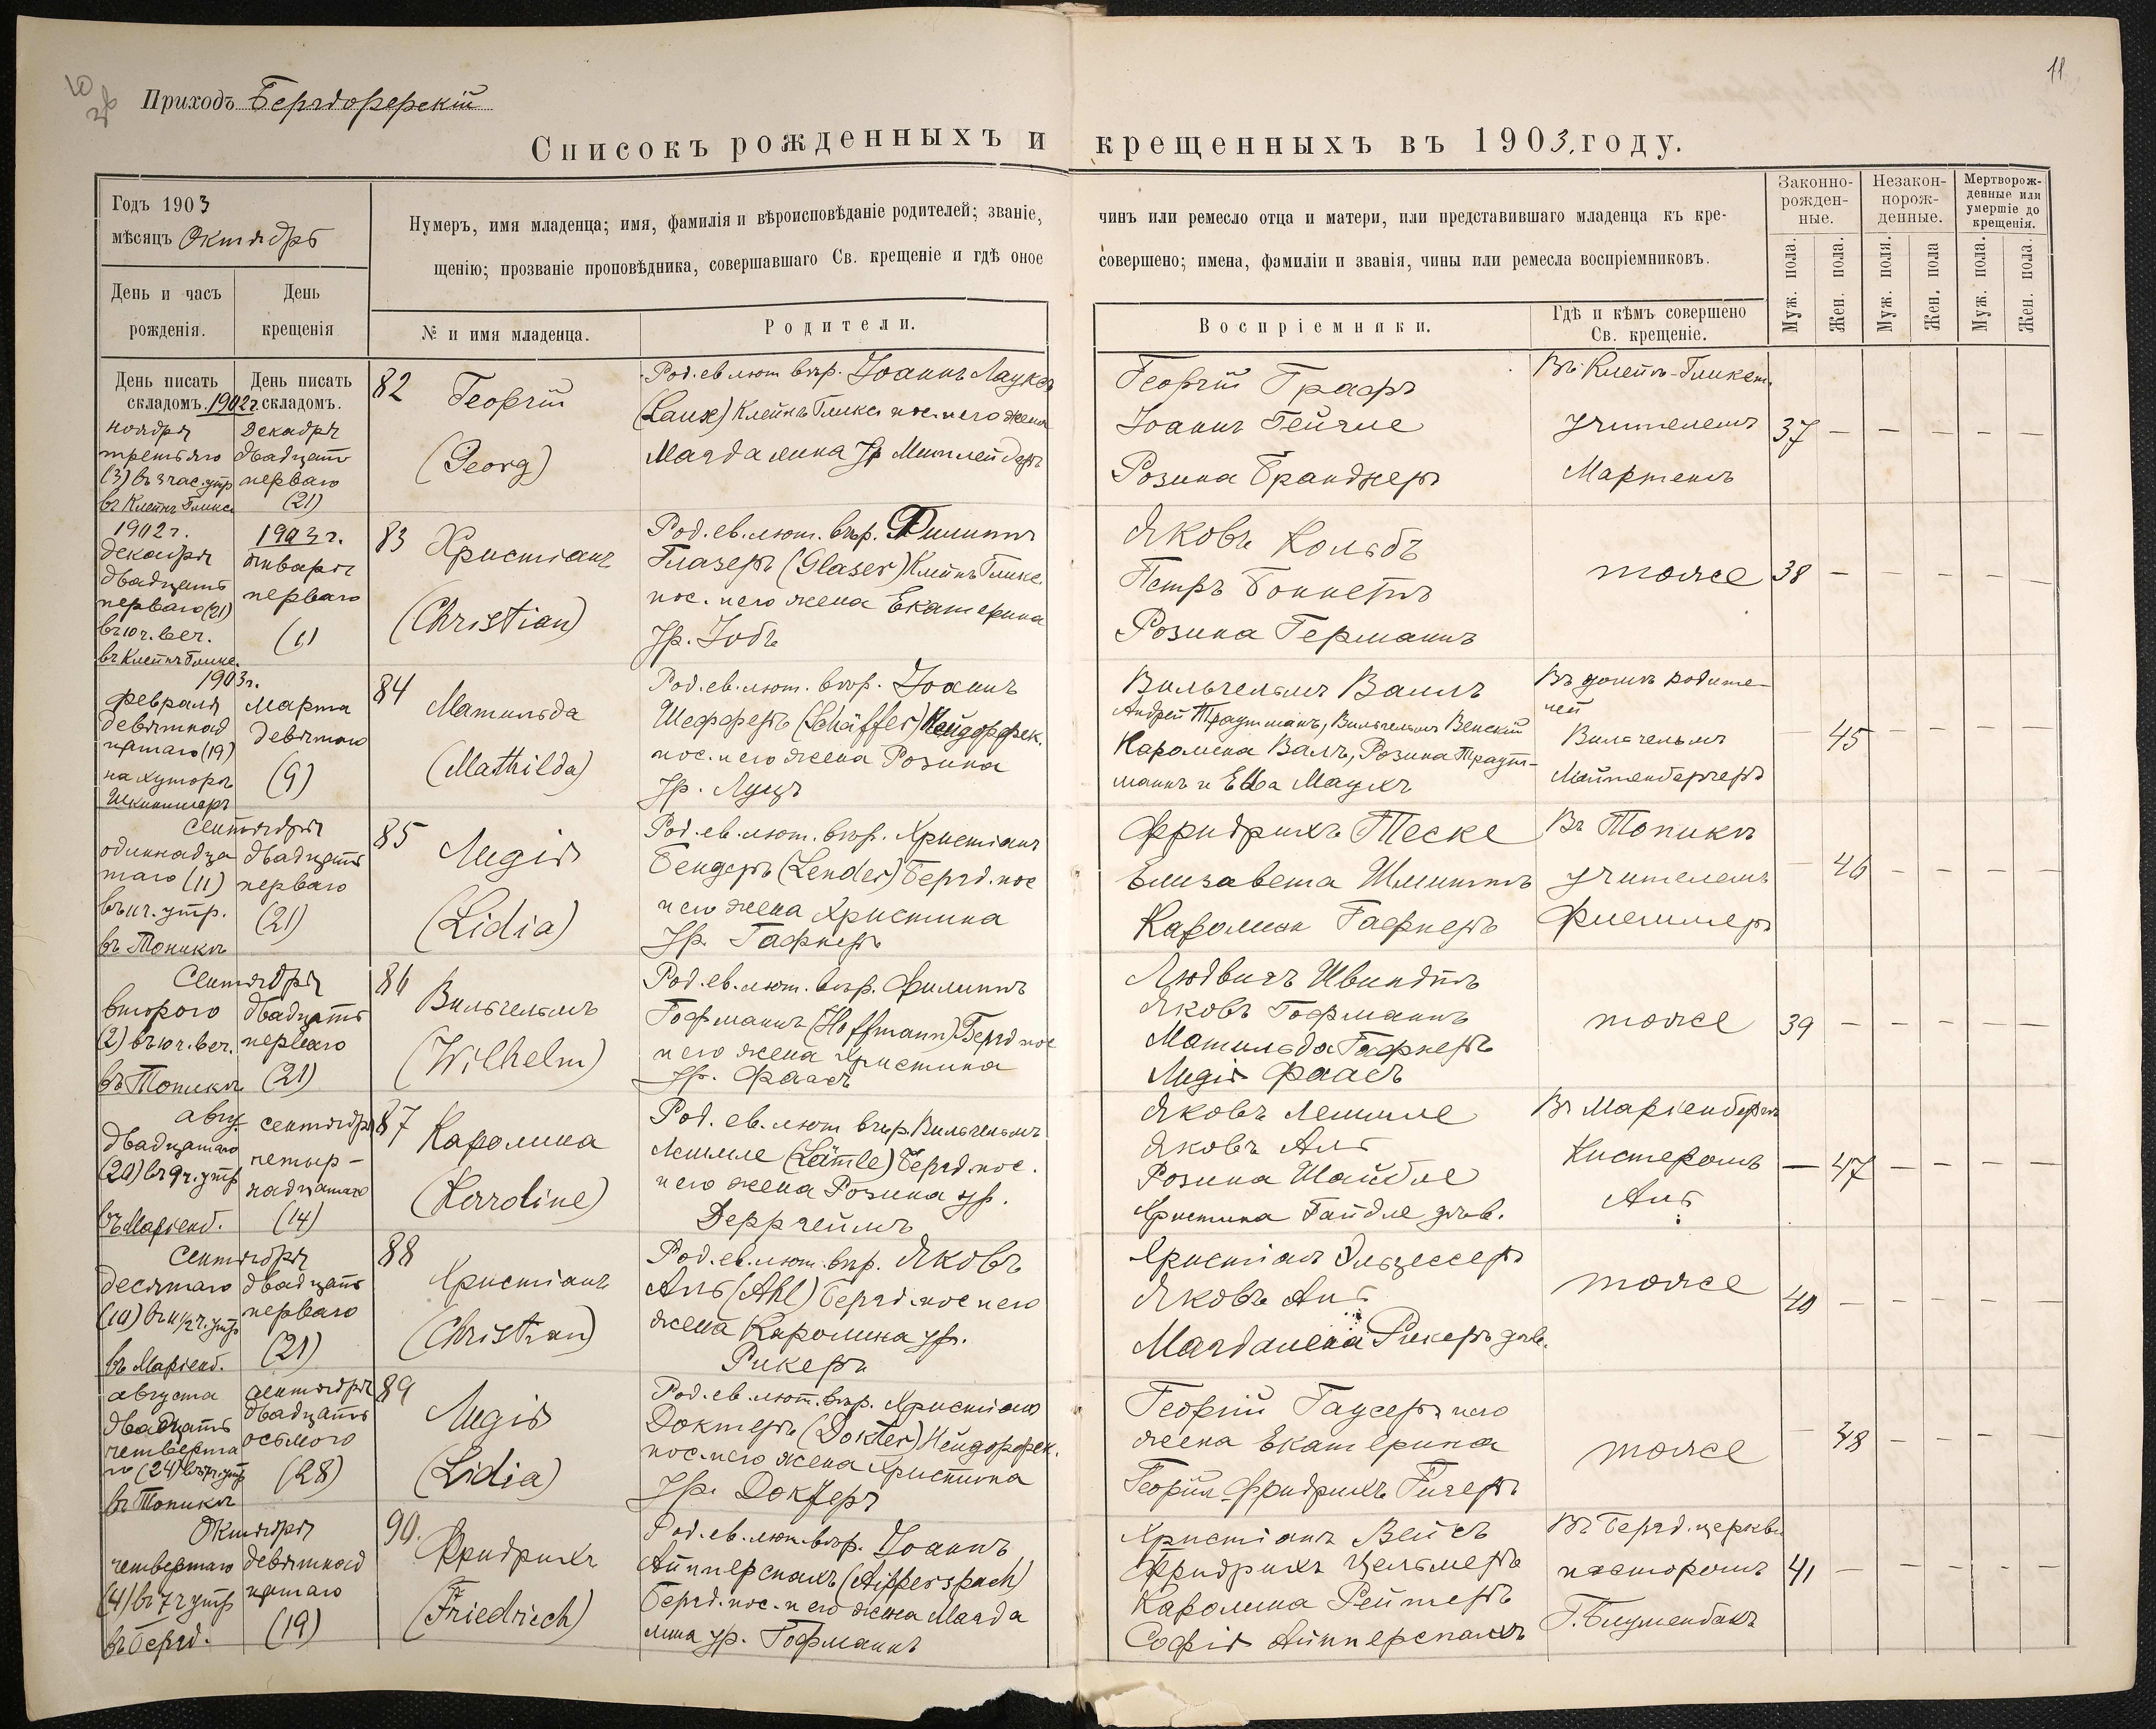 11
Приходъ Бергдорфскій
Списокъ рожденныхъ и крещенныхъ въ 1903. году.
Годъ 1903
мѣсяцъ Октябрь
Нумеръ, имя младенца; имя, фамилія и вѣроисповѣданіе родителей; званіе, чинъ или ремесло отца и матери, или представившаго младенца къ кре-
щенію; прозваніе проповѣдника, совершавшаго Св. крещеніе и гдѣ оное совершено; имена, фамиліи и званія, чины или ремесла воспріемниковъ.
Законно-
рожден-
ные.
Незакон-
норож-
денные.
Мертворож-
денные или
умершіе до
крещенія.
День и часъ
рожденія.
День
крещенія
№ и имя младенца.
Родители.
Воспріемники.
Гдѣ и кѣмъ совершено
Св. крещеніе.
Муж. пола.
Жен. пола.
Муж. пола.
Жен. пола
Муж. пола.
Жен. пола.
День писать
складомъ. 1902г.
День писать
складомъ.
ноября
третьяго
(3) въ 3 час. утр
въ Клейнъ Гликс
декабря
двадцать
перваго
(21)
82 Георгій
(Georg)
Род. ев. лют вѣр. Іоаннъ Лауксъ
(Laux) Клейнъ Гликс. пос. и его жена
Магдалина ур
Георгій Графъ
Іоаннъ Гейгле
Розина Бранднеръ
Въ Клейнъ-Гликст.
учителемъ
Мартенсъ
37 — — — — —
1902 г.
декабря
двадцать
перваго (21)
въ 10 ч. веч.
въ Клейнъ Гликс.
1903 г.
января
перваго
(1)
83 Христіанъ
(Christian)
Род. ев. лют. вѣр. Филиппъ
Глазеръ (Glaser) Клейнъ Гликс
пос. и его жена Екатерина
ур. Іобъ
Яковъ Кольбъ
Петръ Боннетъ
Розина Германнъ
тоже
38 — — — — —
1903 г.
февраля
девятнад
цатаго (19)
на хуторѣ
марта
девятаго
(9)
84 Матильда
(Mathilda)
Род. ев. лют. вѣр. Іоаннъ
Шефферъ (Schäffer) Нейдорфск.
пос. и его жена Розина
ур. Луцъ
Вильгельмъ Валлъ
Андрей Траутманъ, Вильгельмъ Венскій
Каролина Валъ, Розина Траут-
маннъ и Ева Маукъ
Въ домѣ родите-
лей
Вильгельмъ
Лейтенбергеръ
— 45 — — — —
Сентября
одиннадца
таго (11)
въ 11 ч. утр.
въ Топикѣ
двадцать
перваго
(21)
85 Лидія
(Lidia)
Род. ев. лют. вѣр. Христіанъ
Бендеръ (Lender) Бергд. пос
и его жена Христина
ур. Гафнеръ
Фридрихъ Теске
Елизавета Шмиттъ
Каролина Гафнеръ
Въ Топикѣ
учителемъ
— 46 — — — —
Сентября
второго
(2) въ 10 ч. веч.
въ Топикѣ
двадцать
перваго
(21)
86 Вильгельмъ
(Wilhelm)
Род. ев. лют. вѣр. Филиппъ
Гофманнъ (Hoffmann) Бергд пос
и его жена Христина
ур. Фаасъ
Людвигъ Швиндтъ
Яковъ Гофманнъ
Матильда Гафнеръ
Лидія Фаасъ
тоже
39 — — — — —
авгу
двадцатаго
(20) въ 9 ч. утр
въ Маріенб.
сентября
четыр-
надцатаго
(14)
87 Каролина
(Karoline)
Род. ев. лют вѣр. Вильгельмъ
Лемле (Lämle) Бергд. пос.
и его жена Розина ур.
Дерргеймъ
Яковъ Лемле
Яковъ Аль
Розина Шайбле
Христина Гайдле дѣв.
Въ Маріенбергѣ
Кистеромъ
Аль
— 47 — — — —
Сентября
десятаго
(10) въ 11 1/2 ч. утр
въ Маріенб.
двадцать
перваго
(21)
88
Христіанъ
(Christian)
Род. ев. лют. вѣр. Яковъ
Аль (Ahl) Бергд. пос и его
жена Каролина ур.
Рикеръ
Христіанъ Эльзессеръ
Яковъ Аль
Магдалена Рикеръ дѣв.
тоже
40 — — — — —
августа
двадцать
четверта
го (24) въ 7 ч. утр
въ Топикѣ
сентября
двадцать
осьмого
(28)
89 Лидія
(Lidia)
Род. ев. лют. вѣр. Христіанъ
Доктеръ (Dokter) Нейдорфск.
пос. и его жена Христина
ур. Доктеръ
Георгій Гаусеръ и его
жена Екатерина
Георгій Фридрихъ Гигеръ
тоже
— 48 — — — —
Октября
четвертаго
(4) въ 7 ч утр
въ Бергд.
девятнад
цатаго
(19)
90. Фридрихъ
(Friedrich)
Род. ев. лют. вѣр. Іоаннъ
Айпперспахъ (Aippersspach)
Бергд. пос. и его жена Магда
лина ур. Гофманнъ
Христіанъ Вейсъ
Фридрихъ Цельмеръ
Каролина Рейтеръ
Софія Айпперспахъ
Въ Бергд. церкви
пасторомъ
Г. Блуменбахъ
41 — — — — —